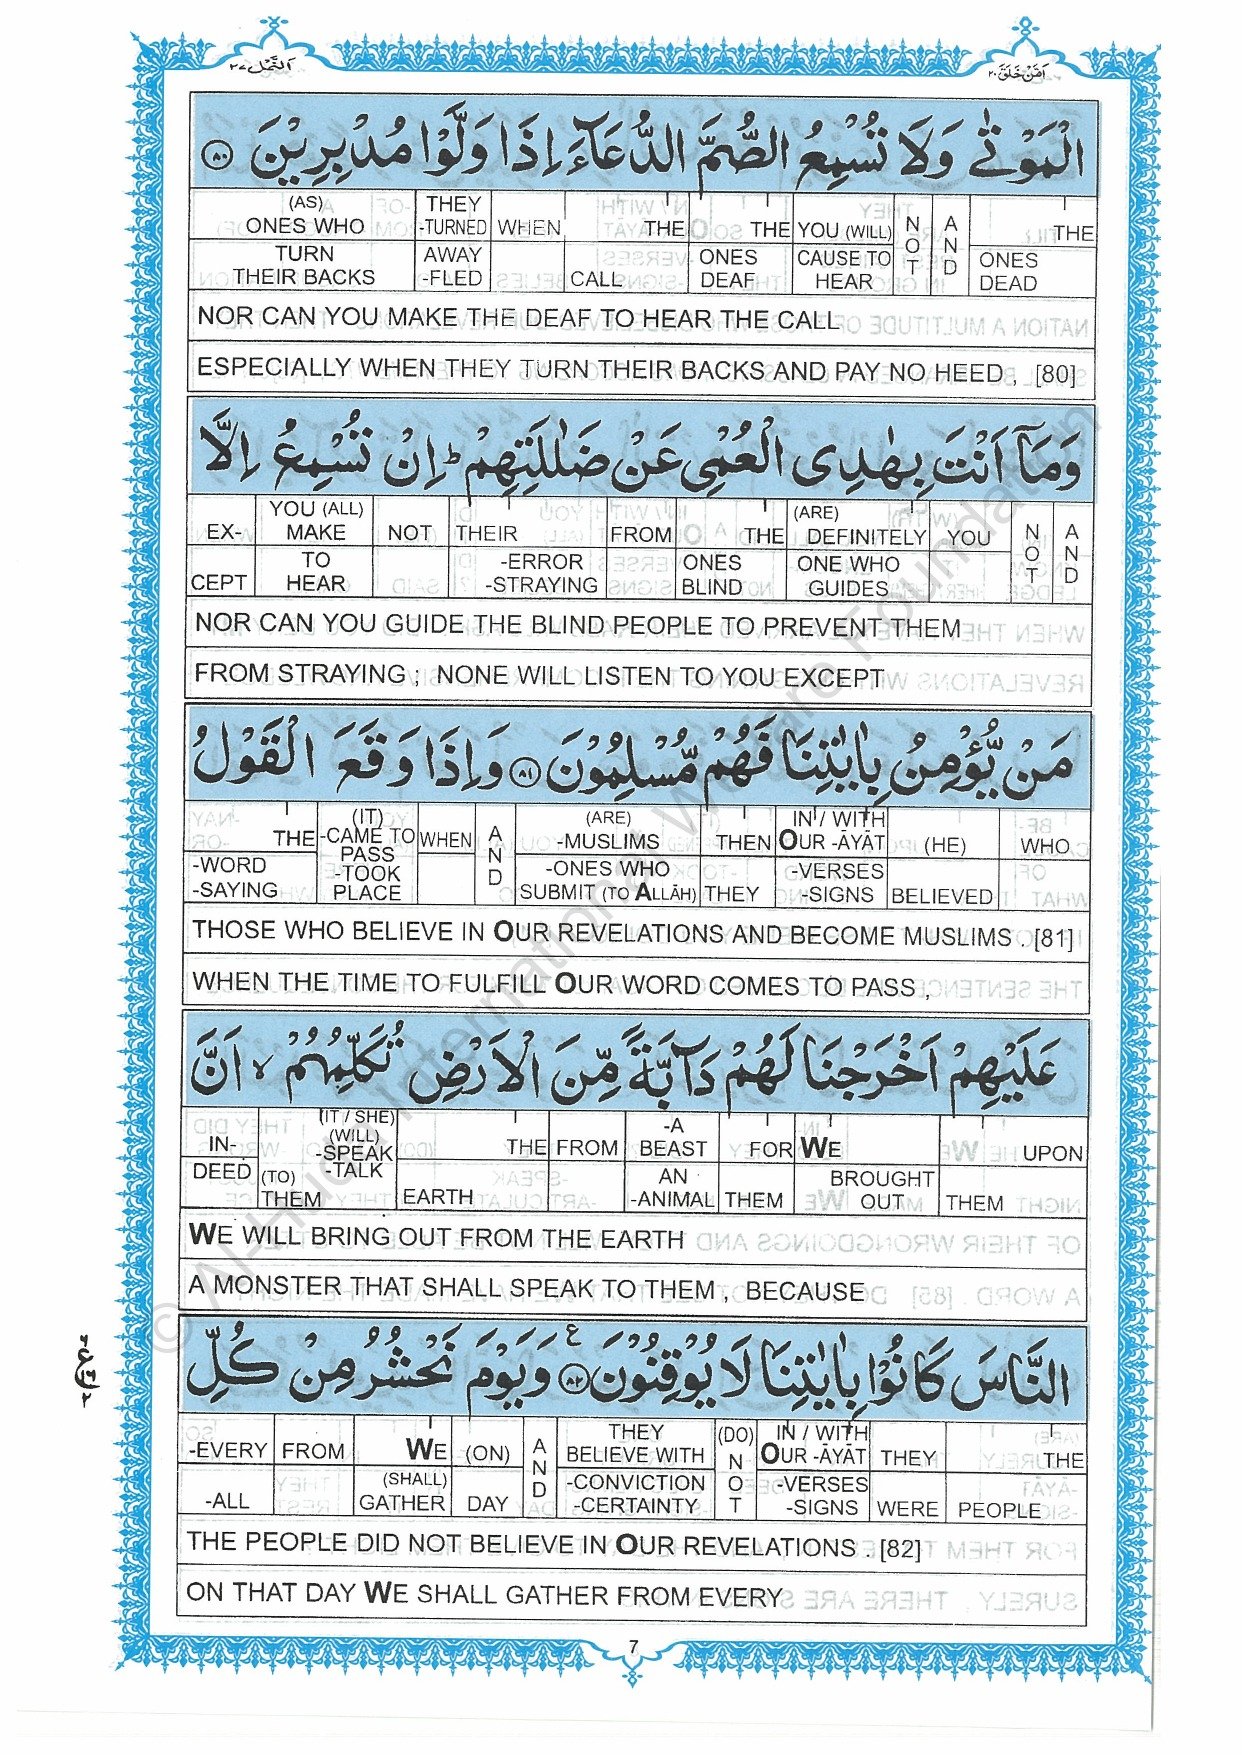 النمل ٢٧
امن خلق ٢٠
الْمَوْتٰى وَلَا تُسْمِعُ الصُّمَّ الدُّعَآءَ اِذَا وَلَّوْا مُدْبِرِيْنَ ۝٨٠
(AS) ONES WHO TURN THEIR BACKS | THEY -TURNED AWAY -FLED | WHEN | THE CALL | THE ONES DEAF | YOU (WILL) CAUSE TO HEAR | NOT | AND | THE ONES DEAD
NOR CAN YOU MAKE THE DEAF TO HEAR THE CALL
ESPECIALLY WHEN THEY TURN THEIR BACKS AND PAY NO HEED , [80]
وَمَآ اَنْتَ بِهٰدِى الْعُمْىِ عَنْ ضَلٰلَتِهِمْ ؕ اِنْ تُسْمِعُ اِلَّا
EX-CEPT | YOU (ALL) MAKE TO HEAR | NOT | THEIR -ERROR -STRAYING | FROM | THE ONES BLIND | (ARE) DEFINITELY ONE WHO GUIDES | YOU | NOT | AND
NOR CAN YOU GUIDE THE BLIND PEOPLE TO PREVENT THEM
FROM STRAYING ; NONE WILL LISTEN TO YOU EXCEPT
مَنْ يُّؤْمِنُ بِاٰيٰتِنَا فَهُمْ مُّسْلِمُوْنَ ۝٨١ وَاِذَا وَقَعَ الْقَوْلُ
THE -WORD -SAYING | (IT) -CAME TO PASS -TOOK PLACE | WHEN | AND | (ARE) -MUSLIMS -ONES WHO SUBMIT (TO ALLĀH) | THEN THEY | IN / WITH OUR -ĀYĀT -VERSES -SIGNS | (HE) BELIEVED | WHO
THOSE WHO BELIEVE IN OUR REVELATIONS AND BECOME MUSLIMS . [81]
WHEN THE TIME TO FULFILL OUR WORD COMES TO PASS ,
عَلَيْهِمْ اَخْرَجْنَا لَهُمْ دَآبَّةً مِّنَ الْاَرْضِ تُكَلِّمُهُمْ ۙ اَنَّ
IN-DEED | (IT / SHE) (WILL) -SPEAK -TALK (TO) THEM | THE EARTH | FROM | -A BEAST AN -ANIMAL | FOR THEM | WE BROUGHT OUT | UPON THEM
WE WILL BRING OUT FROM THE EARTH
A MONSTER THAT SHALL SPEAK TO THEM , BECAUSE
النَّاسَ كَانُوْا بِاٰيٰتِنَا لَا يُوْقِنُوْنَ ۝٨٢ ع وَيَوْمَ نَحْشُرُ مِنْ كُلِّ
-EVERY -ALL | FROM | WE (SHALL) GATHER | (ON) DAY | AND | THEY BELIEVE WITH -CONVICTION -CERTAINTY | (DO) NOT | IN / WITH OUR -ĀYĀT -VERSES -SIGNS | THEY WERE | THE PEOPLE
THE PEOPLE DID NOT BELIEVE IN OUR REVELATIONS . [82]
ON THAT DAY WE SHALL GATHER FROM EVERY
7
© Al-Huda International Welfare Foundation